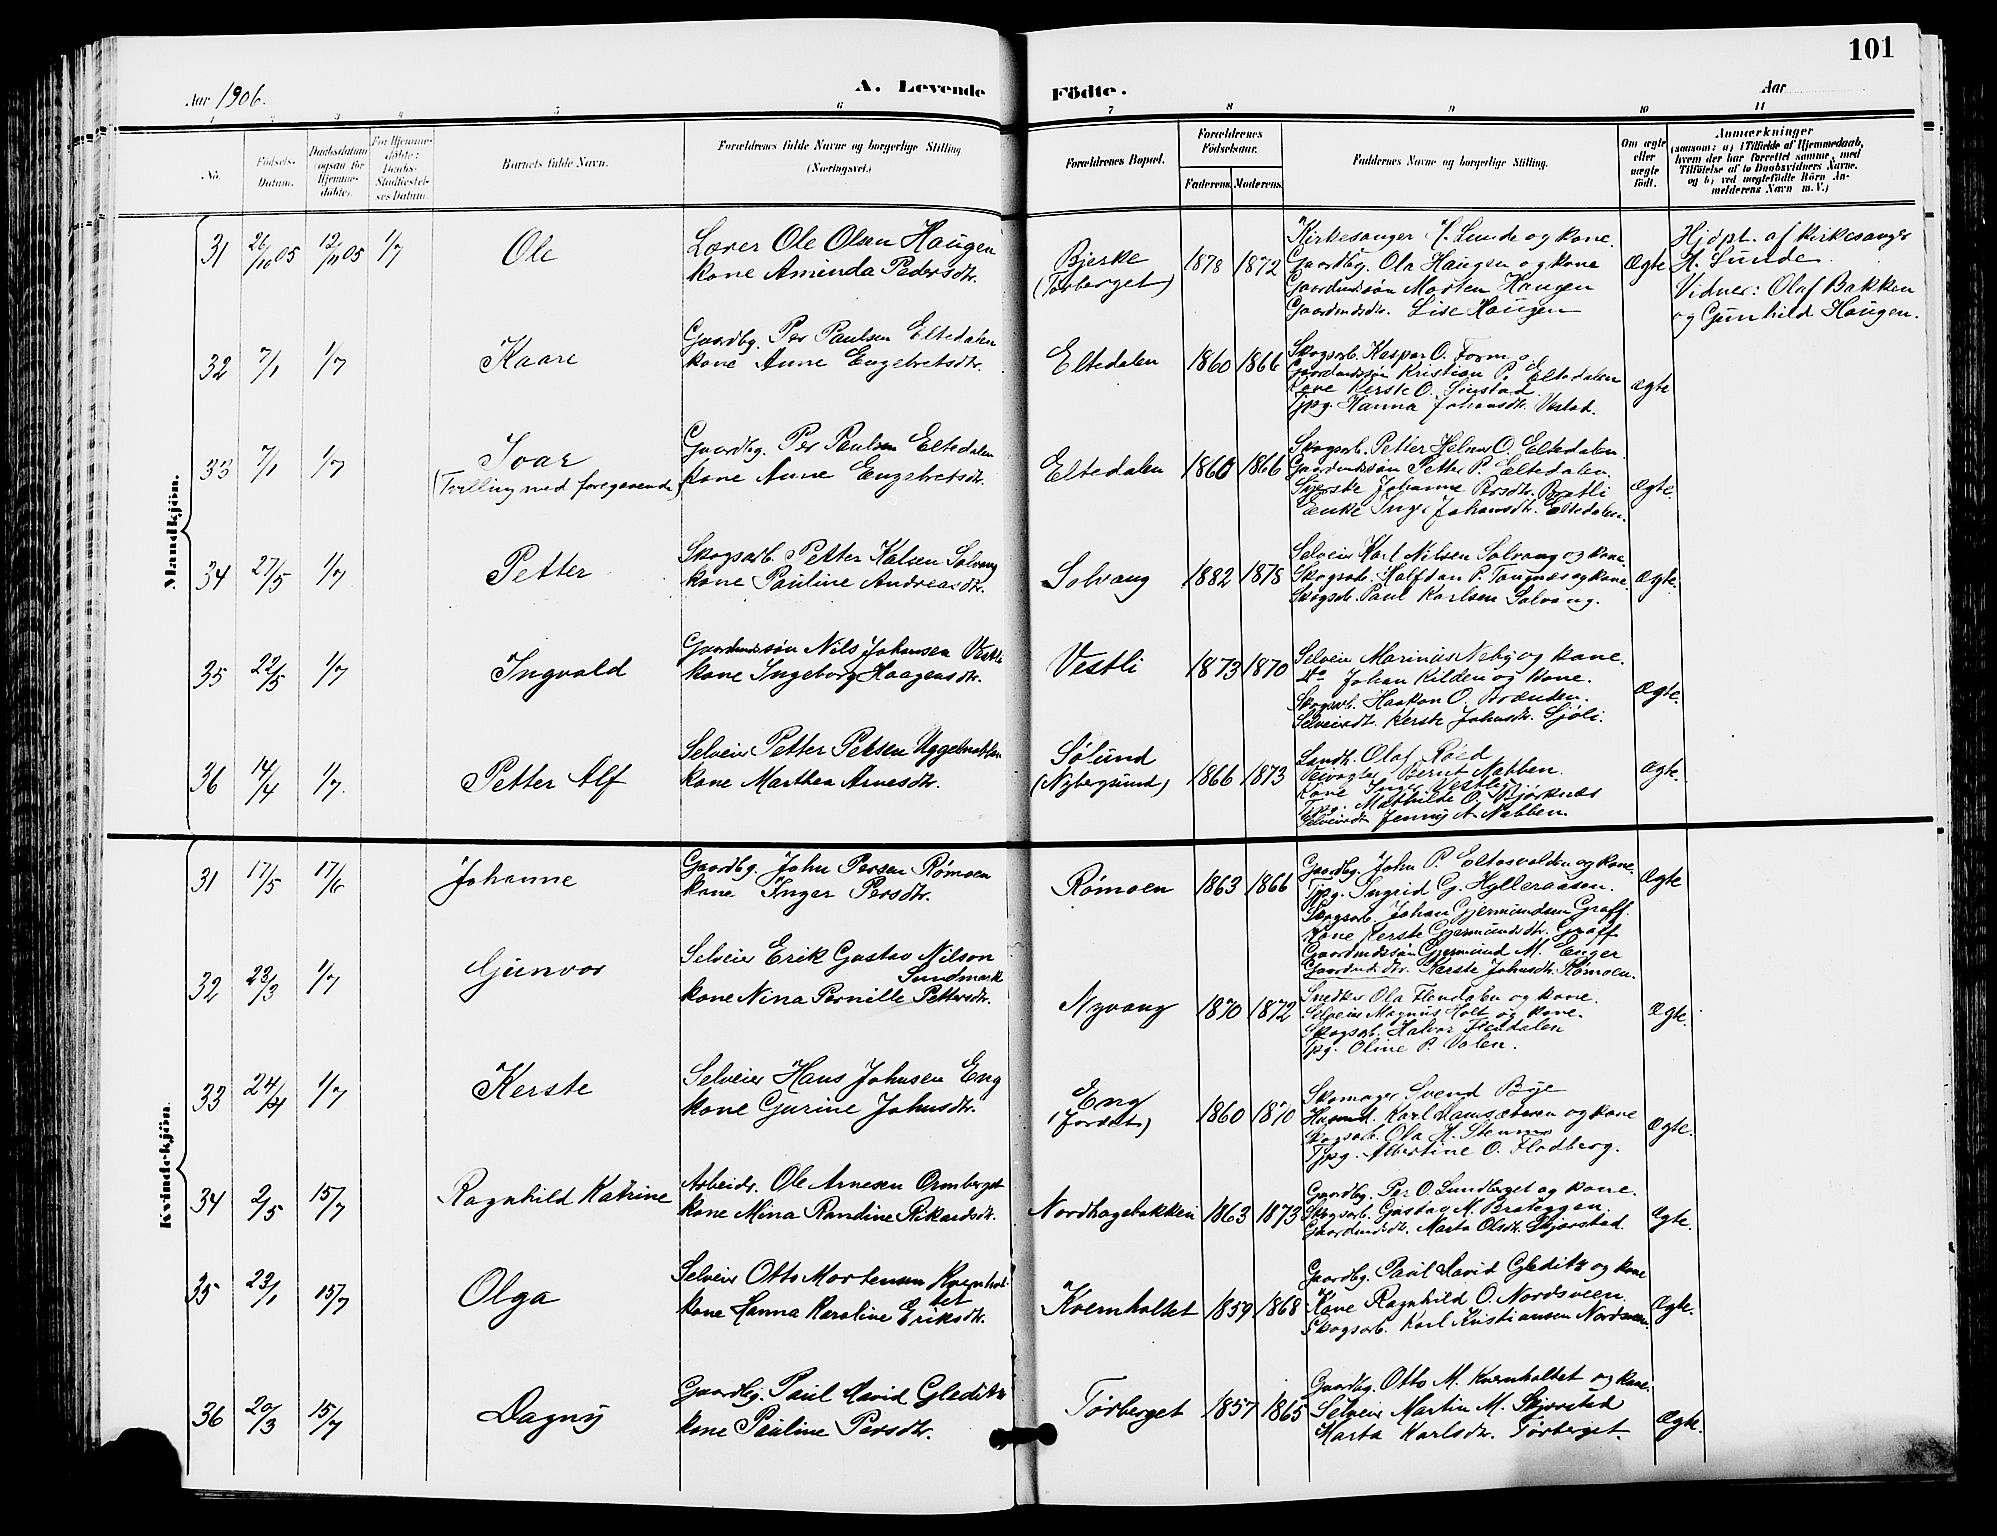 101
Aar 1906.
A. Levende Födte.
Aar
1 2 3 4 5 6 7 8 9 10 11
No.
Födsels-Datum.
Daabsdatum (ogsaa for Hjemme-döbte).
For Hjemme-döbte: Daabs-Stadfæstel-ses Datum.
Barnets fulde Navn.
Forældrenes fulde Navne og borgerlige Stilling (Næringsvei.)
Forældrenes Bopæl.
Forældrenes Födselsaar.
Faderens. Moderens.
Faddernes Navne og borgerlige Stilling.
Om ægte eller uægte födt.
Anmærkninger
(saasom: a) i Tilfælde af Hjemmedaab,
hvem der har forrettet samme, med
Tilföielse af to Daabsvidners Navne.
og b) ved uægtefödte Börn An-
melderens Navn m. V.)
Mandkjön.
31 26/10 05 12/11 05 1/7 Ole
Lærer Ole Olsen Haugen
kone Aminda Pedersdtr.
Bjerke
(Tørberget)
1878 1872
Kirkesanger H. Lunde og kone.
Gaardbg. Ola Haugen og kone
Gaardmdssøn Morten Haugen
Gaardmdsdtr. Lise Haugen
Ægte
Hjdpt. af kirkesanger
H. Lunde.
Vidner: Olaf Bakken
og Gunhild Haugen.
32 7/1 1/7 Kaare
Gaardbg. Per Paulsen Eltedalen
kone Anne Engebretsdtr.
Eltedalen 1860 1866
Skogsarb. Kaspar O. Formo
Gaardmdssøn Kristian P. Eltedalen
Kone Kerste O. Sinstad
Tjpg. Hanna Johansdtr. Vestad.
ægte
33 7/1 1/7 Ivar
(Tvilling med foregaaende)
Gaardbg. Per Paulsen Eltedalen
kone Anne Engebretsdtr.
Eltedalen 1860 1866
Skogsarb. Petter Helmer O. Eltedalen.
Gaardmdssøn Petter P. Eltedalen.
Syerske Johanne Persdtr. Bratli
Enke Inger Johansdtr. Eltedalen.
Ægte.
34 27/5 1/7 Petter
Skogsarb. Petter Kalsen Solvang
kone Pauline Andreasdtr.
Solvang 1882 1878
Selveier Karl Nilsen Solvang og kone.
Skogsarb. Halfdan P. Tangnæs og kone.
Skogsarb. Paul Karlsen Solvang.
Ægte.
35 22/5 1/7 Ingvald
Gaardmdssøn Nils Johansen Vestli
kone Ingeborg Haagensdtr.
Vestli 1873 1870
Selveier Marinius Neby og kone.
do Johan Kilden og kone.
Skogsarb. Haakon O. Brænden.
Selveierdtr. Kerste Johnsdtr. Sjøli.
Ægte.
36 14/4 1/7. Petter Alf
Selveier Petter Petsen
kone Marthea Arnesdtr.
Sølund
(Nybergsund)
1866 1873
Landh. Olaf Røed
Veivogter Bernt Nabben.
Kone Inger Vestby
Tjpg. Mathilde O. Bjørknæs
Selveierdtr. Jenny A. Nabben.
Ægte.
Kvindekjön.
31 17/5 17/6 Johanne
Gaardbg. John Persen Rømoen
kone Inger Persdtr.
Rømoen 1863 1866
Gaardbg. John P. Eltosvolden og kone.
Tjpg. Ingrid G. Hylleraasen.
Skogsarb. Johan Gjermundsen Graff.
Kone Kerste Gjermundsdtr. Graff
Gaardmdssøn Gjermund M. Enger
Gaardmdsdtr. Kerste Johnsdtr. Rømoen.
Ægte
32 23/3 1/7 Gunvor
Selveier Erik Gustav Nilson
Sundmark
kone Nina Pernille Pettersdtr.
Nyvang 1870 1872
Snedker Ola Flendalen og kone.
Selveier Magnus Holt og kone.
Skogsarb. Halvor Flendalen
Tpg. Oline P. Volen.
Ægte.
33 24/4 1/7 Kerste
Selveier Hans Johnsen Eng
kone Gurine Johnsdtr.
Eng
(Jordet)
1860 1870
Skomager Svend Bye
Husmd. Karl Damsæteren og kone
Skogsarb. Ola H. Stenmo
Tjpg. Albertine O. Flodberg.
Ægte.
34 2/5 15/7 Ragnhild Katrine
Arbeidr. Ole Arnesen Ormberget
kone Mina Randine Rikardsdtr.
Nordhagebakken 1863 1873
Gaardbg. Per O. Lundberget og kone.
Skogsarb. Gustav M. Brateggen.
Gaardmdsdtr. Marta Olsdtr. Skjærstad.
Ægte.
35 23/1 15/7 Olga
Selveier Otto Mortensen Kvernhol-
tet
kone Hanna Karoline Eriksdtr.
Kvernholtet 1859 1868
Gaardbg. Paul David Gleditz og kone
Kone Ragnhild O. Nordsveen.
Skogsarb. Karl Kristiansen Nordsveen
Ægte.
36 20/3 15/7 Dagny
Gaardbg. Paul David Gleditz
kone Pauline Persdtr.
Tørberget 1857 1865
Gaardbg. Otto M. Kvernholtet og kone.
Selveier Martin M. Skjærstad
Marta Karlsdtr. Tørberget.
Ægte.